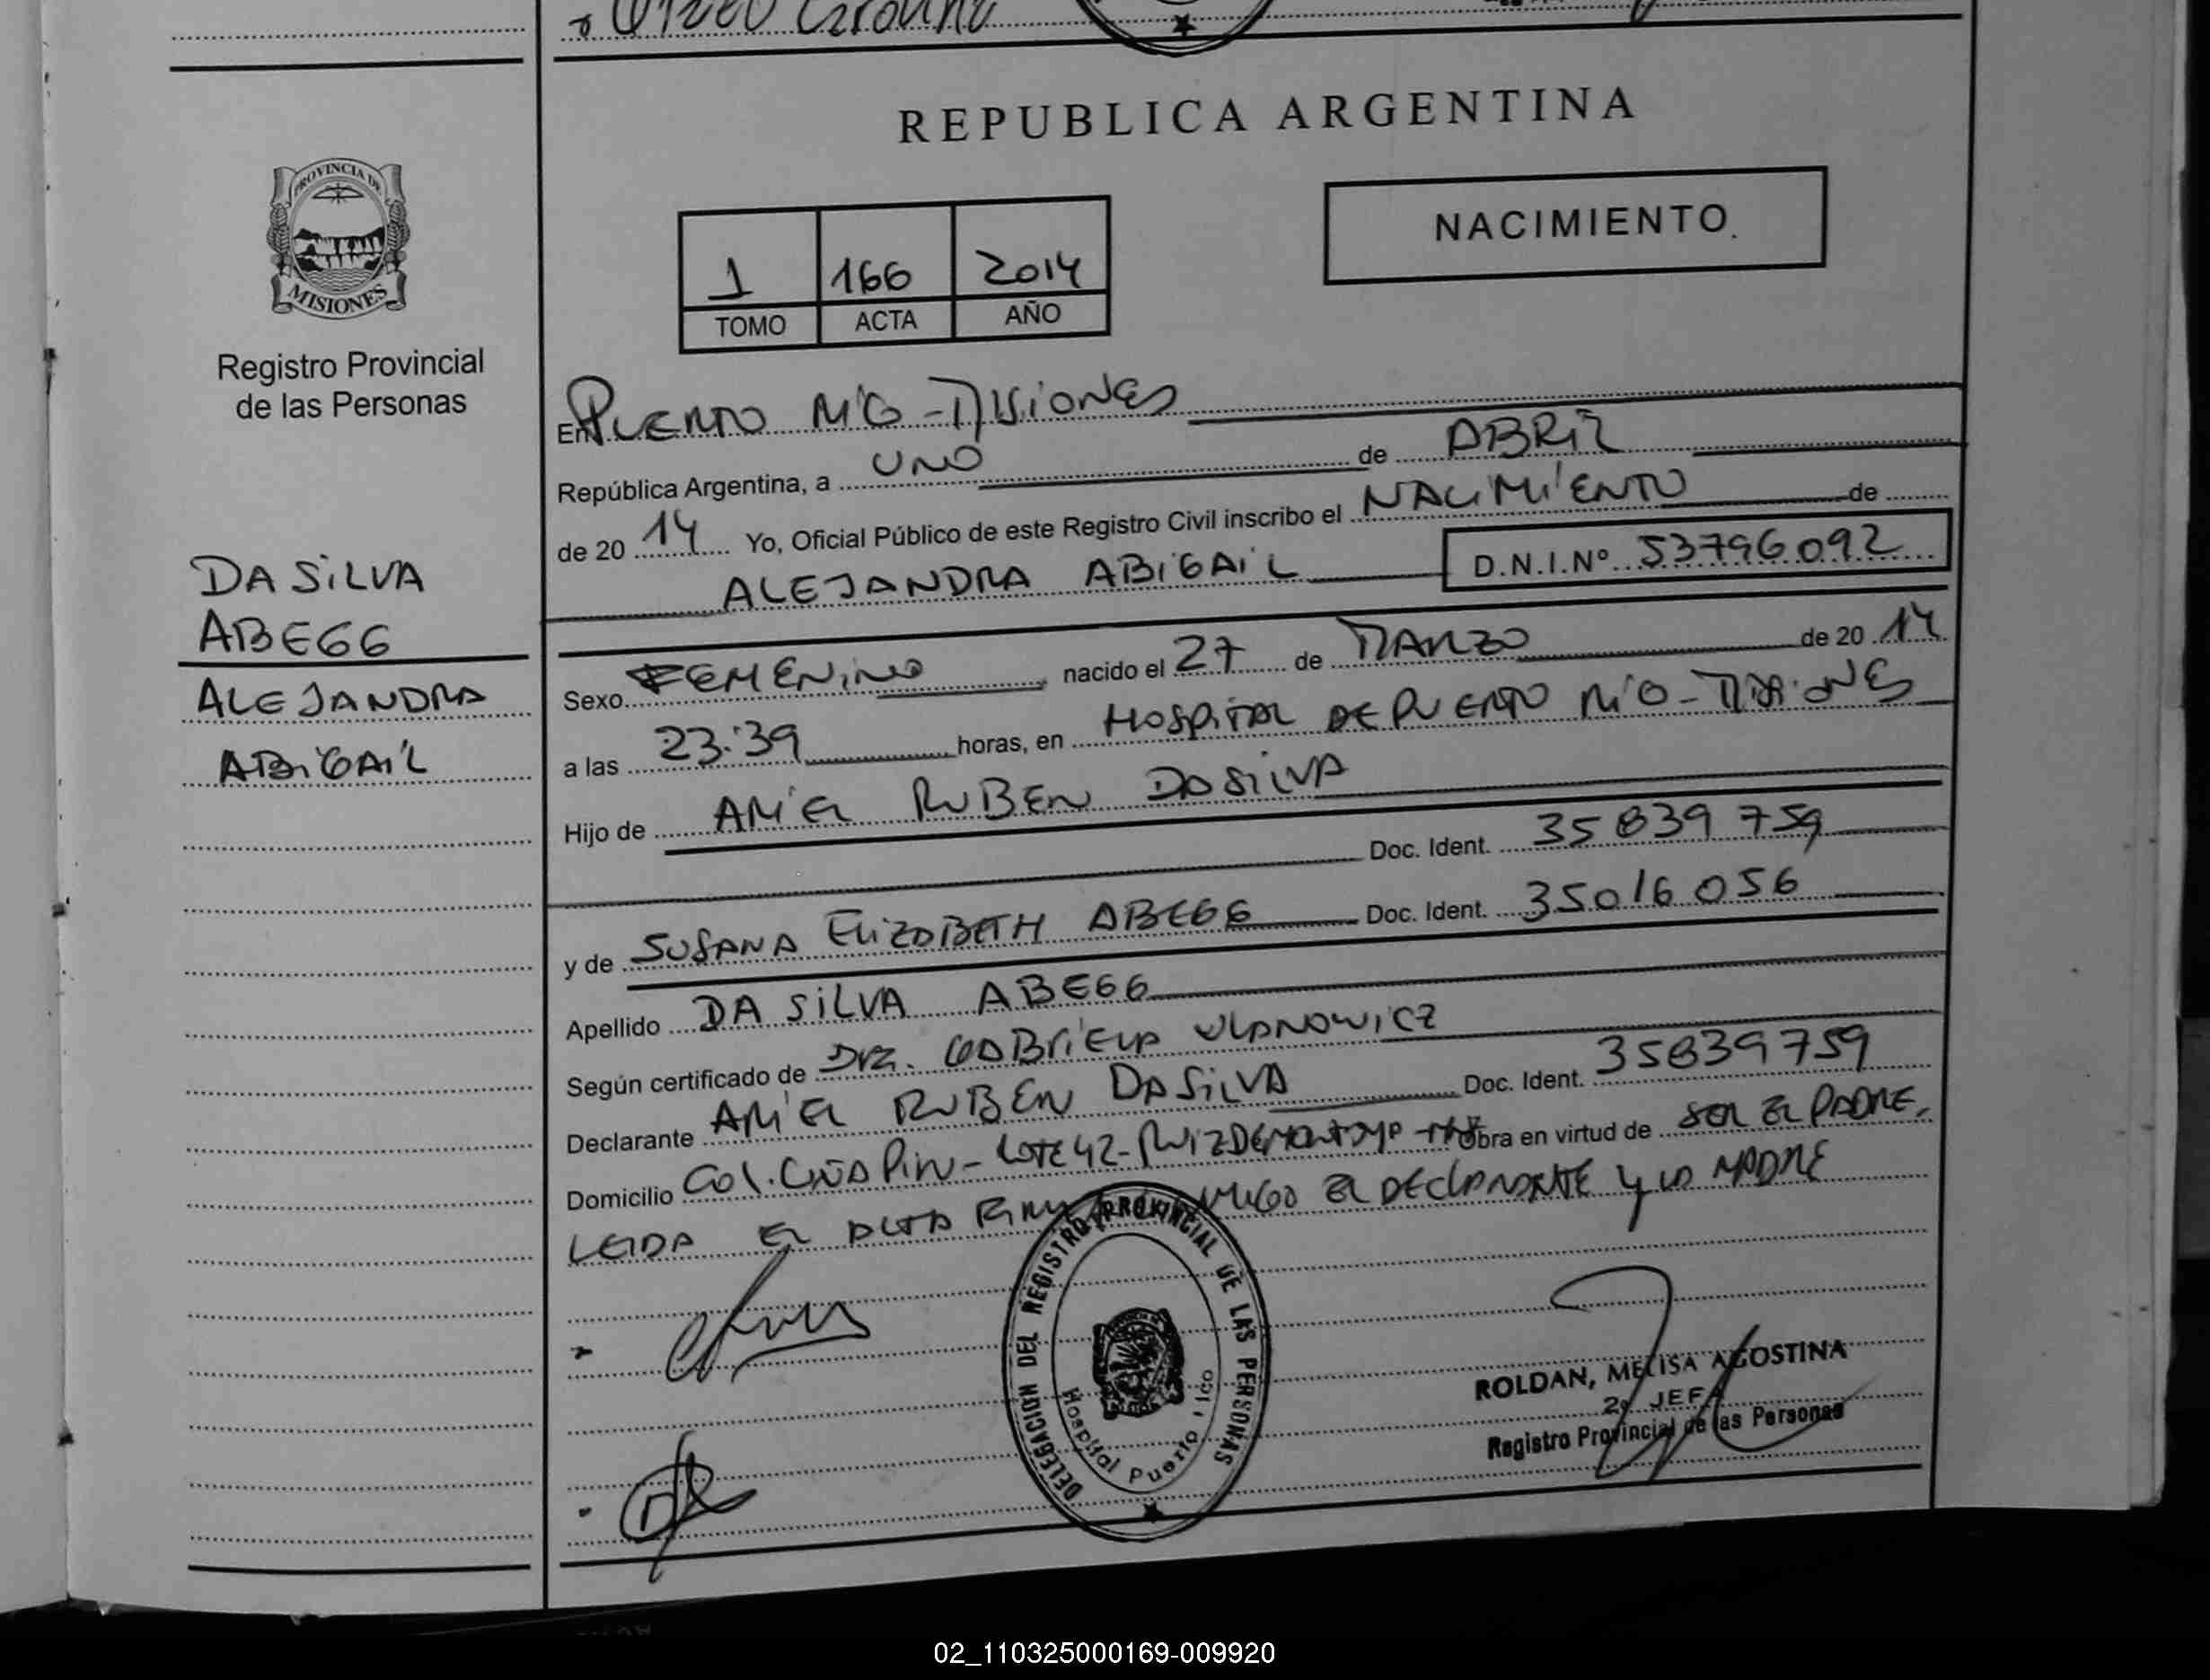 REPUBLICA ARGENTINA
PROVINCIA DE
MISIONES
Registro Provincial
de las Personas
DA SILVA
ABEGG
ALEJANDRA
ABIGAIL
NACIMIENTO.
1 166 2014
TOMO ACTA AÑO
En PUERTO RICO - MISIONES
República Argentina, a UNO de ABRIL
de 20 14 Yo, Oficial Público de este Registro Civil inscribo el NACIMIENTO de
ALEJANDRA ABIGAIL D.N.I.Nº 53796092
Sexo FEMENINO nacido el 27 de MARZO de 20 14
a las 23:39 horas, en HOSPITAL DE PUERTO RICO - MISIONES
Hijo de ARIEL RUBEN DA SILVA
Doc. Ident. 35839759
y de SUSANA ELIZABETH ABEGG Doc. Ident. 35016056
Apellido DA SILVA ABEGG
Según certificado de DRA. GABRIELA ULANOWICZ
Declarante ARIEL RUBEN DA SILVA Doc. Ident. 35839759
Domicilio COL. CUÑA PIRU - LOTE 42 - RUIZ DE MONTOYA obra en virtud de SER EL PADRE,
LEIDA EL ACTA FIRMA CONMIGO EL DECLARANTE Y LA MADRE
DELEGACION DEL REGISTRO PROVINCIAL DE LAS PERSONAS
Hospital Puerto Rico
ROLDAN, MELISA AGOSTINA
2º JEFA
Registro Provincial de las Personas
02_110325000169-009920